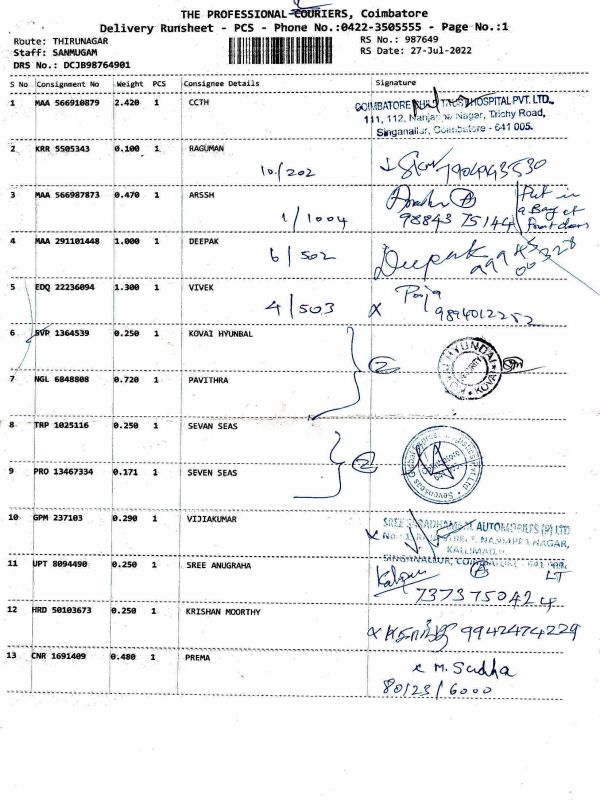 THE PROFESSIONAL COURIERS, Coimbatore
Delivery Runsheet - PCS - Phone No.:0422-3505555 - Page No.:1
Route: THIRUNAGAR RS No.: 987649
Staff: SANMUGAM RS Date: 27-Jul-2022
DRS No.: DCJB98764901
S No Consignment No Weight PCS Consignee Details Signature
1 MAA 566910879 2.420 1 CCTH
COIMBATORE CHILD TRUST HOSPITAL PVT. LTD.,
111, 112, Nanjappa Nagar, Trichy Road,
Singanallur, Coimbatore - 641 005.
2 KRR 5505343 0.100 1 RAGUMAN
10/202
3 MAA 566987873 0.470 1 ARSSH
1/1004 98843 75144 Put in a Bag at Front door
4 MAA 291101448 1.000 1 DEEPAK
6/502 Deepak
5 EDQ 22236094 1.300 1 VIVEK
4/503 x Poja
9894012252
6 SVP 1364539 0.250 1 KOVAI HYUNBAL
2
KOVAI HYUNDAI SECURITY KOVAI
7 NGL 6848808 0.720 1 PAVITHRA
8 TRP 1025116 0.250 1 SEVAN SEAS
2
Coimbatore
9 PRO 13467334 0.171 1 SEVEN SEAS
10 GPM 237103 0.290 1 VIJIAKUMAR
SREE SARADHAMBAL AUTOMOBILES (P) LTD
NAGAR,
SINGANALLUR, COIMBATORE - 641 005.
11 UPT 8094490 0.250 1 SREE ANUGRAHA
Kalpana LT
7373750424
12 HRD 50103673 0.250 1 KRISHAN MOORTHY
x 9942474229
13 CNR 1691409 0.480 1 PREMA
x M. Sudha
80/23/6000